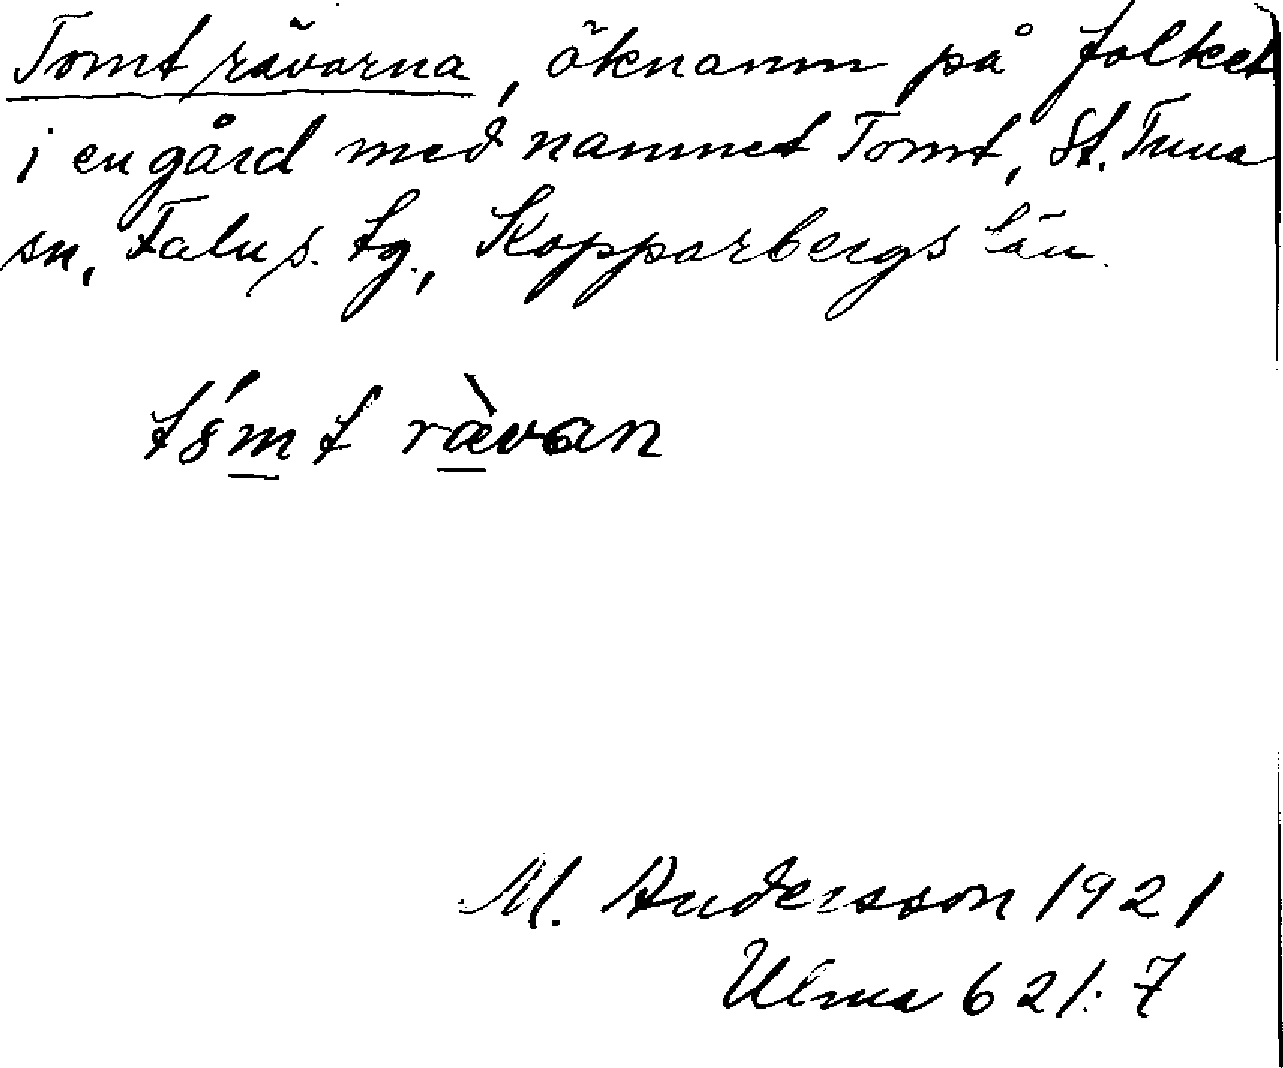 Tomträvarna, öknamn på folket
i en gård med namnet Tomt, St. Tuna
sn, Falu s. tg., Kopparbergs län.
tómt rævan
M. Andersson 1921
Ulma 621:7